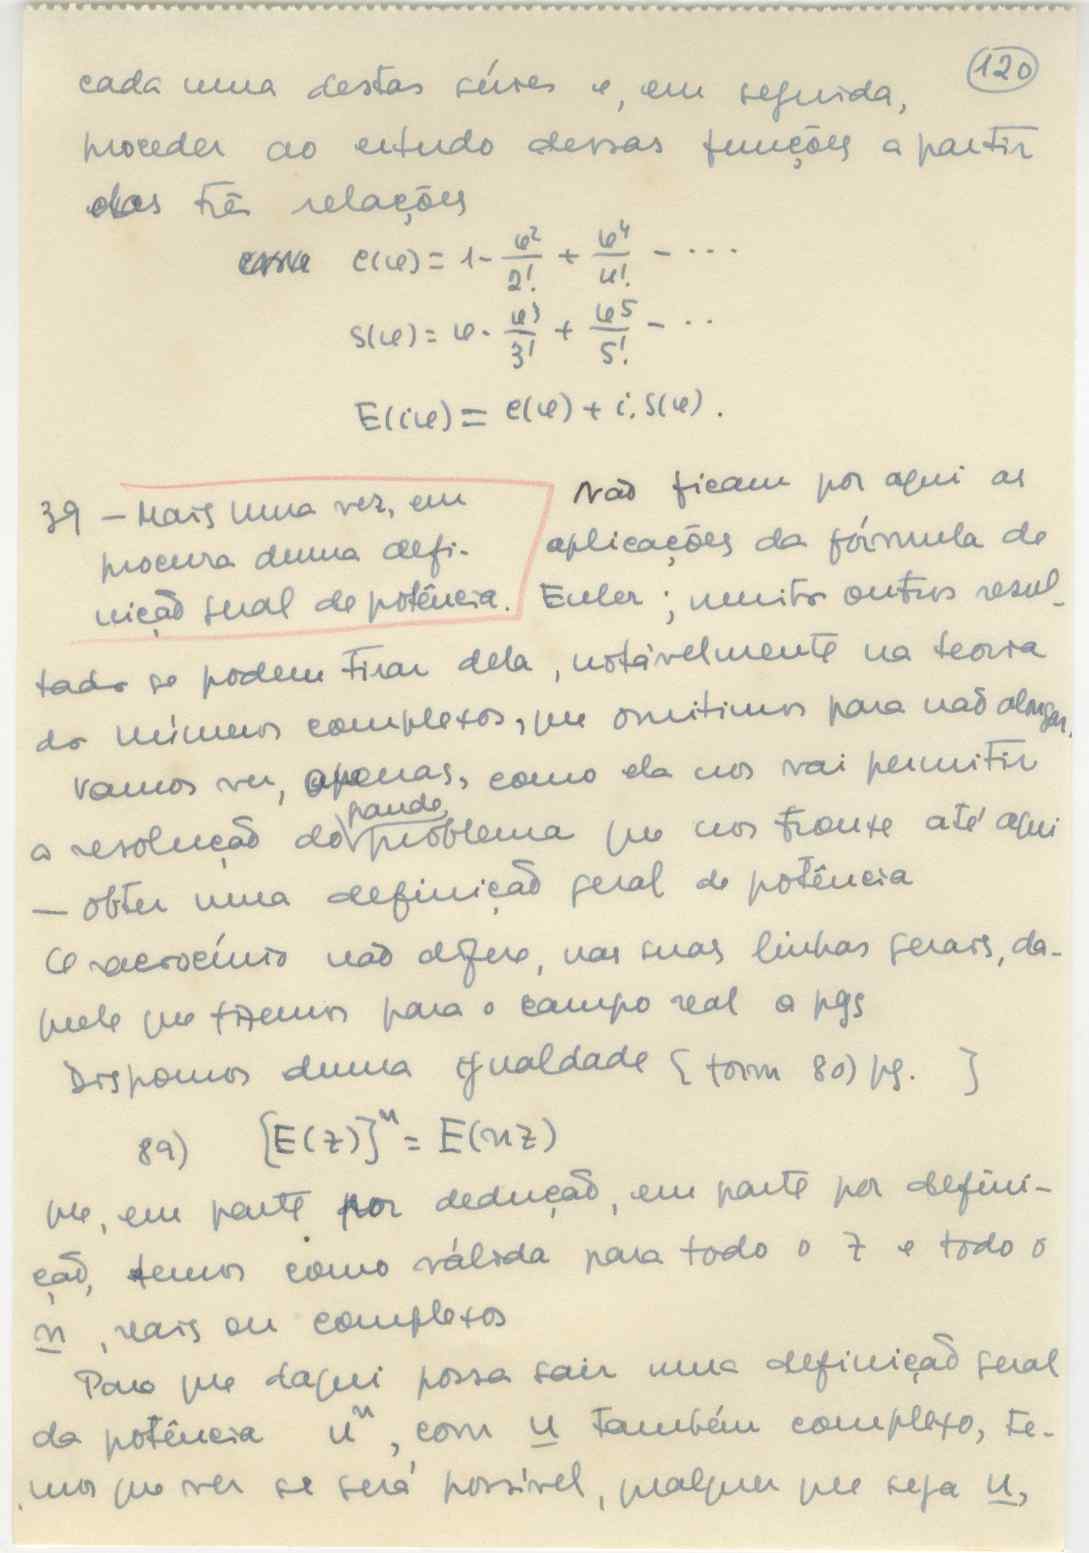 120
cada uma destas séries e, em seguida,
proceder ao estudo dessas funções a partir
das três relações
c(φ) = 1 - φ²/2! + φ⁴/4! - ...
s(φ) = φ - φ³/3! + φ⁵/5! - ...
E(iφ) = c(φ) + i.s(φ).
39 — Mais uma vez, em
procura duma defi-
nição geral de potência.
Não ficam por aqui as
aplicações da fórmula de
Euler; muitos outros resul-
tados se podem tirar dela, notávelmente na teoria
dos números complexos, que omitimos para não alongar.
Vamos ver, apenas, como ela nos vai permitir
grande
a resolução do problema que nos trouxe até aqui
— obter uma definição geral de potência
O raciocínio não difere, nas suas linhas gerais, da-
quele que fizemos para o campo real a pgs
Dispomos duma igualdade [form 80) pg. ]
89) [E(z)]ⁿ = E(nz)
que, em parte por dedução, em parte por defini-
ção, temos como válida para todo o z e todo o
n, reais ou complexos
Para que daqui possa sair uma definição geral
da potência uⁿ, com u também complexo, te-
mos que ver se será possível, qualquer que seja u,